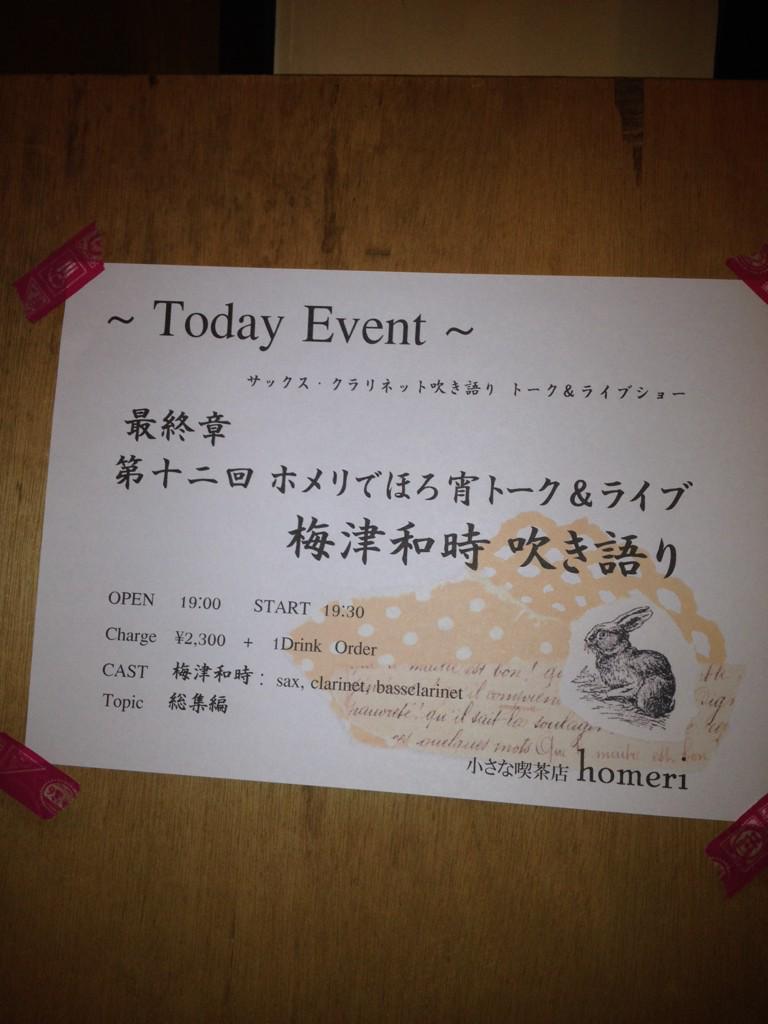 ~ Today Event ~
サックス・クラリネット吹き語り トーク＆ライブショー
最終章
第十二回 ホメリでほろ宵トーク＆ライブ
梅津和時 吹き語り
OPEN 19:00 START 19:30
Charge ¥2,300 + 1Drink Order
CAST 梅津和時： sax, clarinet, bassclarinet
Topic 総集編
est bon! qu
il convien
qu'il suit la soulager
mots Que
est bon
小さな喫茶店 homeri